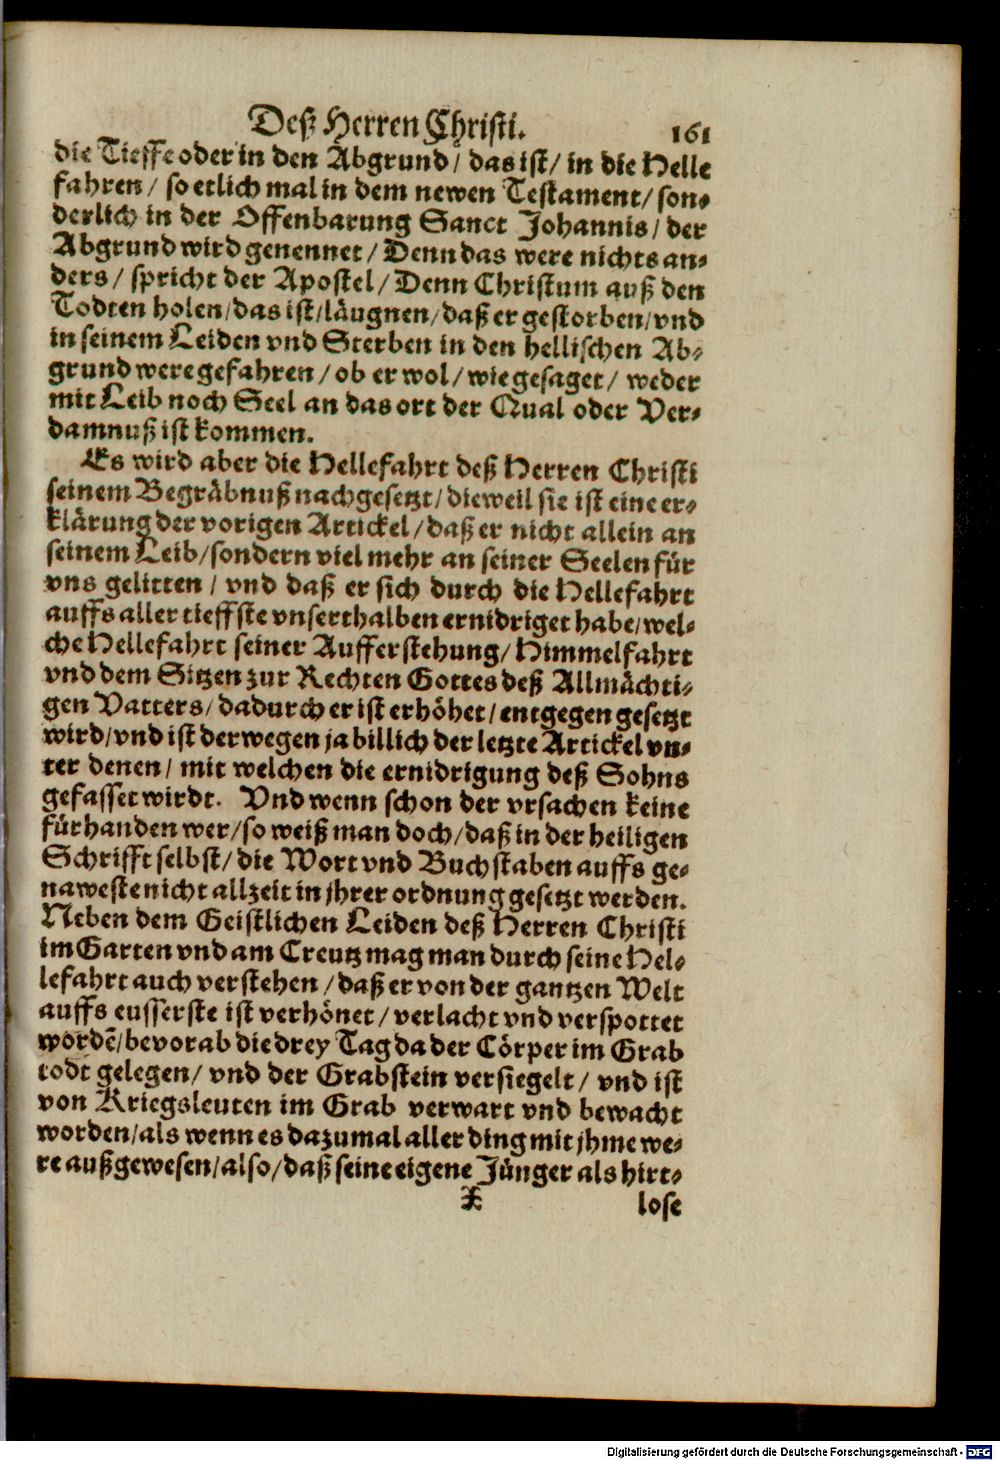 Deß Herren Christi.
161
die Tieffe oder in den Abgrund / das ist / in die Helle
fahren / so etlich mal in dem newen Testament / son-
derlich in der Offenbarung Sanct Johannis / der
Abgrund wird genennet / Denn das were nichts an-
ders / spricht der Apostel / Denn Christum auß den
Todten holen / das ist / läugnen / daß er gestorben / vnd
in seinem Leiden vnd Sterben in den hellischen Ab-
grund were gefahren / ob er wol / wie gesaget / weder
mit Leib noch Seel an das ort der Qual oder Ver-
damnuß ist kommen.
Es wird aber die Hellefahrt deß Herren Christi
seinem Begräbnuß nachgesetzt / dieweil sie ist eine er-
klärung der vorigen Artickel / daß er nicht allein an
seinem Leib / sondern viel mehr an seiner Seelen für
vns gelitten / vnd daß er sich durch die Hellefahrt
auffs aller tieffste vnserthalben ernidriget habe / wel-
che Hellefahrt seiner Aufferstehung / Himmelfahrt
vnd dem Sitzen zur Rechten Gottes deß Allmächti-
gen Vatters / dadurch er ist erhöhet / entgegen gesetzt
wird / vnd ist derwegen ja billich der letzte Artickel vn-
ter denen / mit welchen die ernidrigung deß Sohns
gefasset wirdt. Vnd wenn schon der vrsachen keine
fürhanden wer / so weiß man doch / daß in der heiligen
Schrifft selbst / die Wort vnd Buchstaben auffs ge-
naweste nicht allzeit in jhrer ordnung gesetzt werden.
Neben dem Geistlichen Leiden deß Herren Christi
im Garten vnd am Creutz mag man durch seine Hel-
lefahrt auch verstehen / daß er von der gantzen Welt
auffs eusserste ist verhönet / verlacht vnd verspottet
wordē / bevorab die drey Tag da der Cörper im Grab
todt gelegen / vnd der Grabstein versiegelt / vnd ist
von Kriegsleuten im Grab verwart vnd bewacht
worden / als wenn es dazumal aller ding mit jhme we-
re auß gewesen / also / daß seine eigene Jünger als hirt-
X
lose
Digitalisierung gefördert durch die Deutsche Forschungsgemeinschaft - DFG